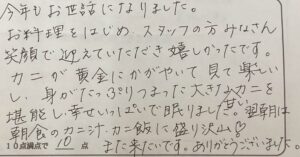 今年もお世話になりました。
お料理をはじめ、スタッフの方みなさん
笑顔で迎えていただき嬉しかったです。
カニが黄金にかがやいて見て楽しい
し、身がたっぷりつまった大きな甘いカニを
堪能し、幸せいっぱいで眠りました。翌朝は
朝食のカニ汁、カニ飯に盛り沢山♡
また来たいです。ありがとうございました。
10点満点で 10 点